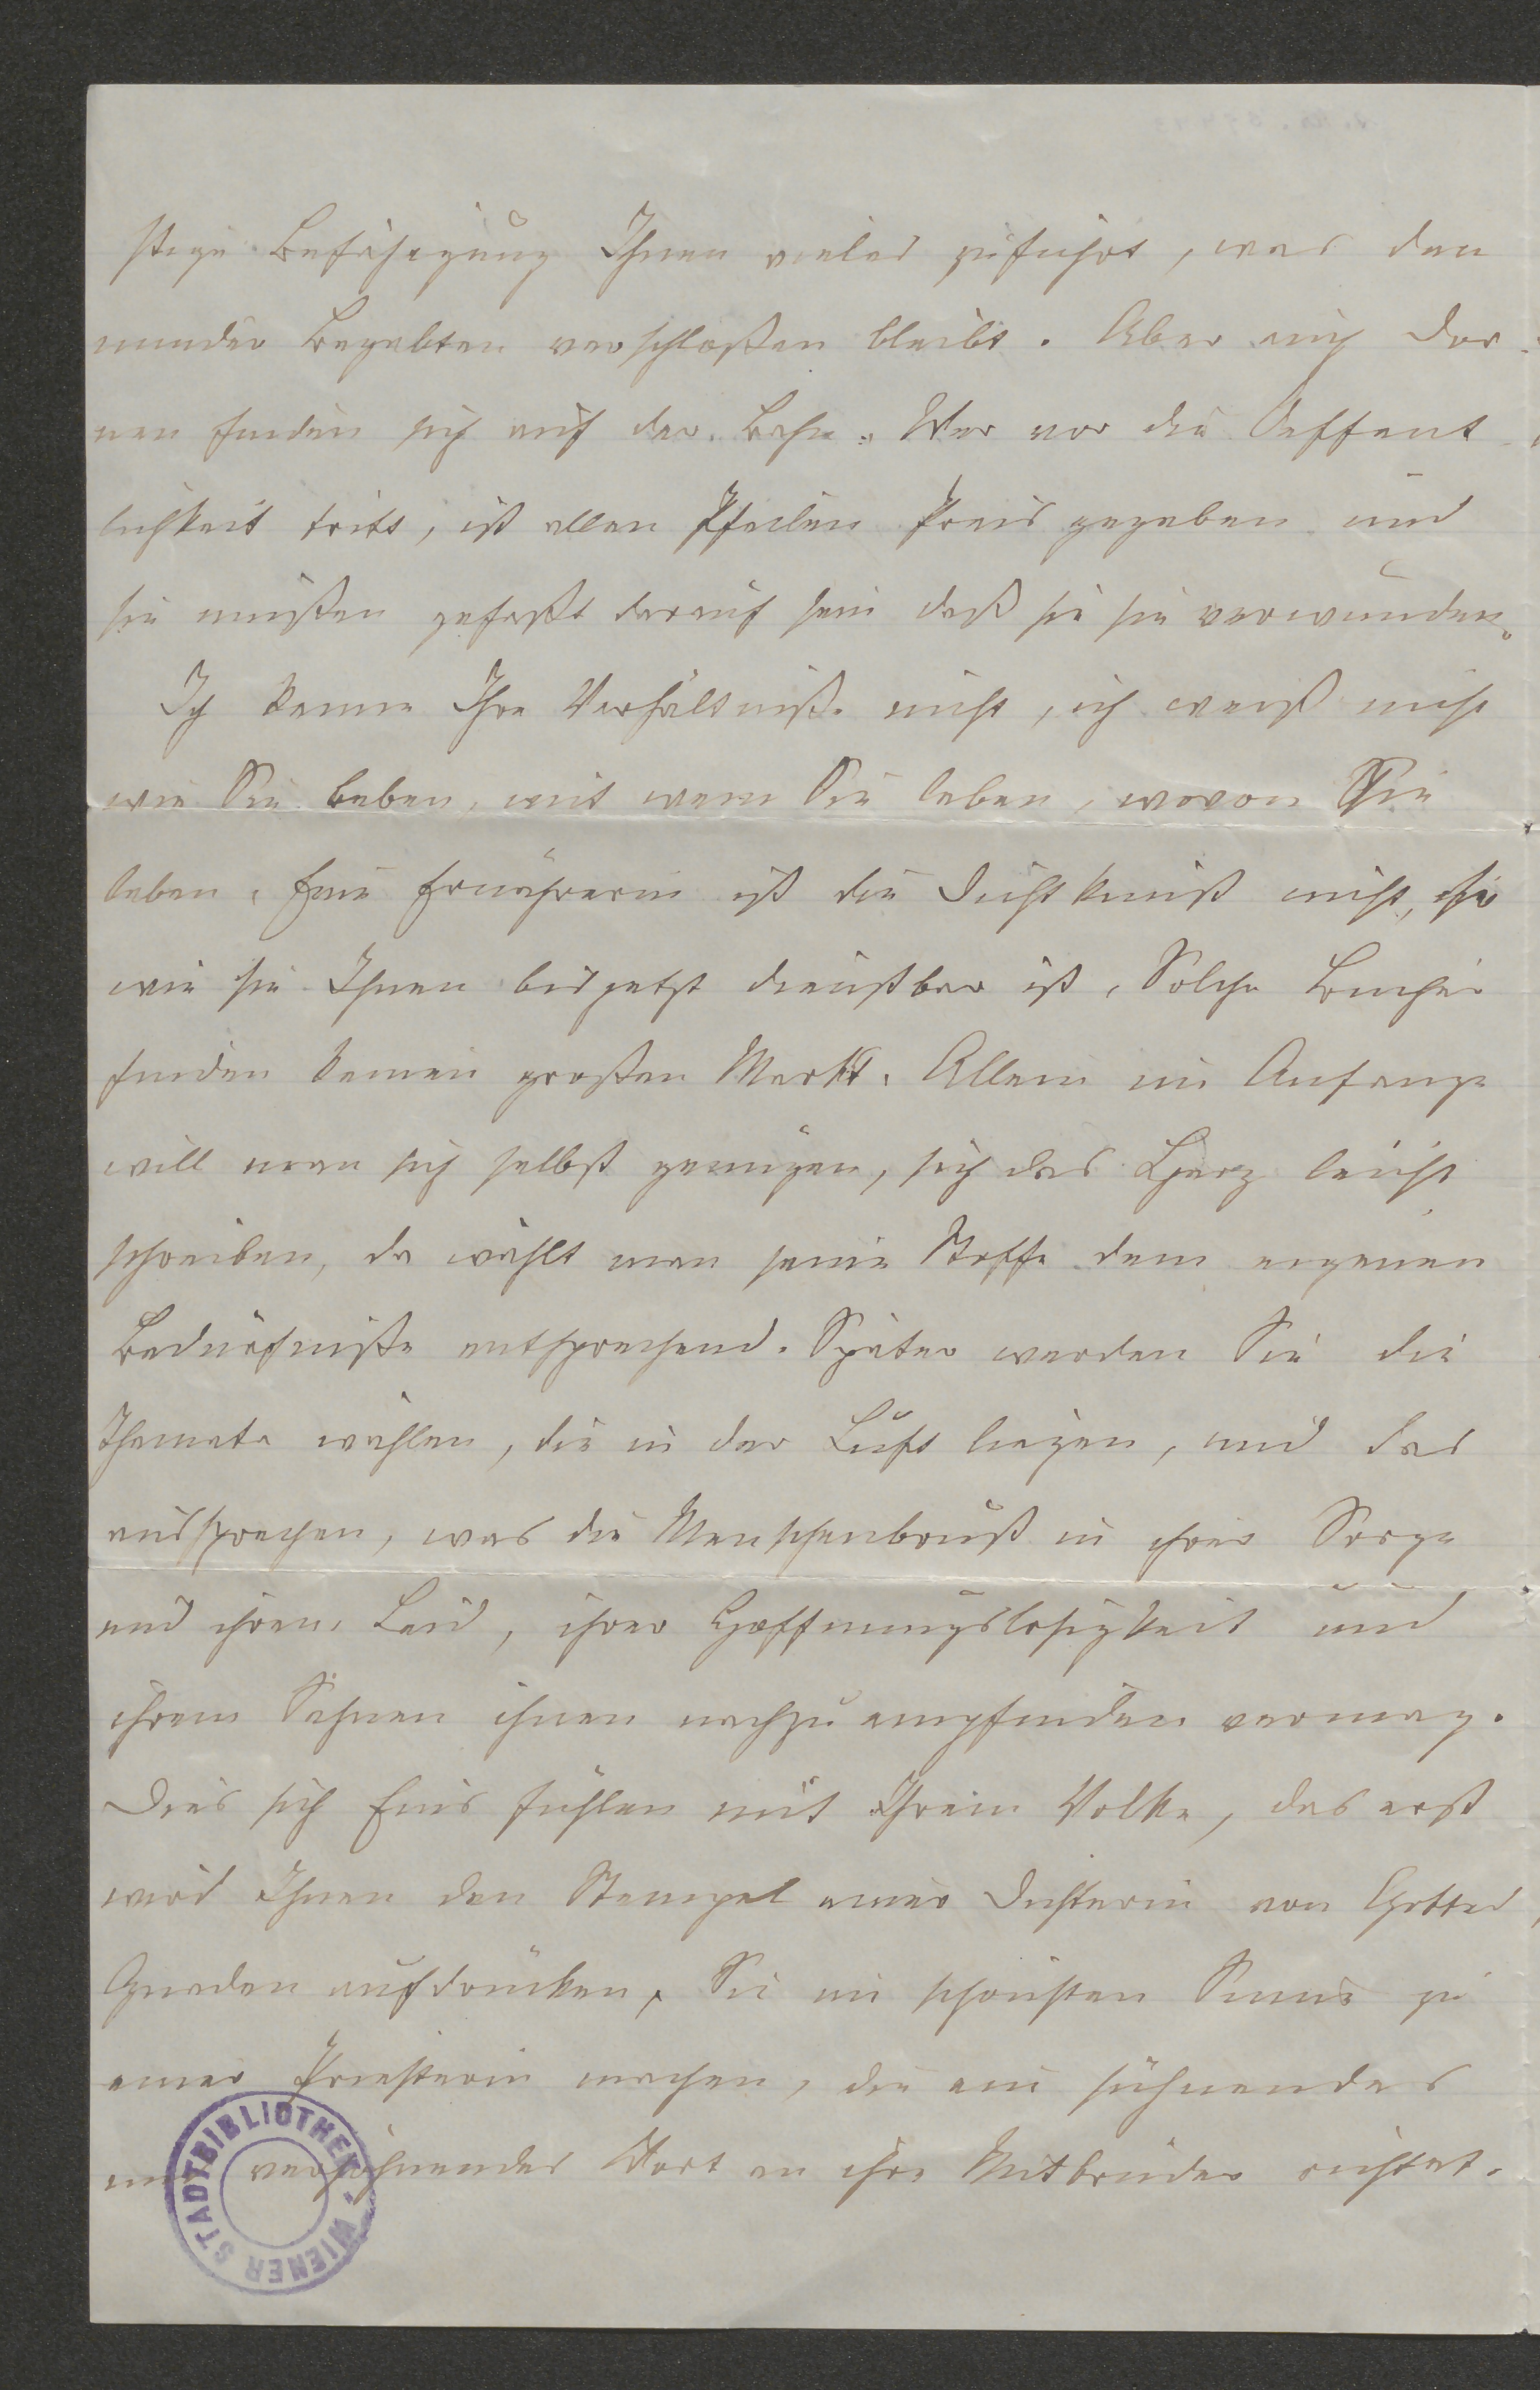 stige Befähigung Ihnen vieles zuführt, was den
minder Begabten verschloßen bleibt. Aber auch Dor-
nen finden sich auf der Bahn. Wer vor die Oeffent-
lichkeit tritt, ist allen Pfeilen Preis gegeben und
sie müßen gefaßt darauf sein daß sie sie verwunden.
Ich kenne Ihre Verhältniße nicht, ich weiß nicht
wie Sie leben, mit wem Sie leben, wovon Sie
leben. Eine Ernährerin ist die Dichtkunst nicht,
wie sie Ihnen bis jetzt dienstbar ist. Solche Bücher
finden keinen großen Markt. Allein im Anfange
will man sich selbst genügen, sich das Herz leicht
schreiben, da wählt man seine Stoffe dem eigenen
Bedürfniße entsprechend. Später werden Sie die
Themata wählen, die in der Luft liegen, und das
aussprechen, was die Menschenbrust in ihrer Sorge
und ihrem Leid, ihrer Hoffnungslosigkeit und
ihrem Sehnen ihnen nachzuempfinden vermag.
Dies sich Eins fühlen mit Ihrem Volke, das erst
wird Ihnen den Stempel einer Dichterin von Gottes
Gnaden aufdrücken, Sie im schönsten Sinne zu
einer Priesterin machen, die ein sühnendes
und versöhnendes Wort an ihre Mitbrüder richtet.
WIENER STADTBIBLIOTHEK